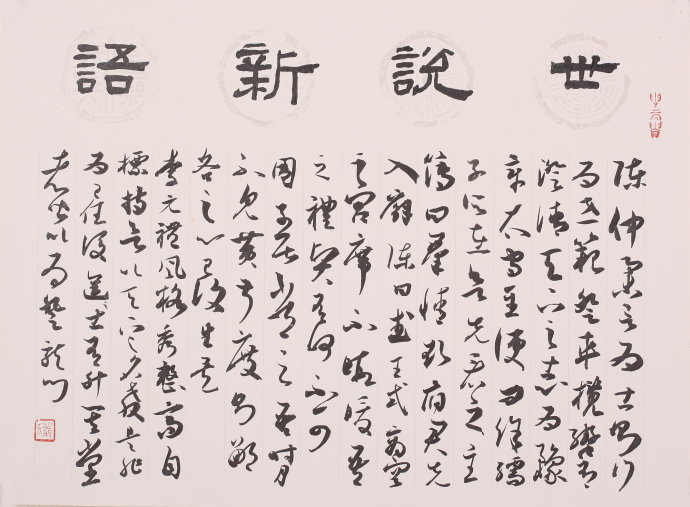 世說新語
陳仲舉言為士則行
為世範登車攬轡有
澄清天下之志為豫
章太守至便問徐孺
子所在欲先看之主
簿曰群情欲府君先
入廨陳曰武王式商容
之閭席不暇煖吾
之禮賢有何不可
周子居常云吾時月
不見黃叔度則鄙
吝之心已復生矣
李元禮風格秀整高自
標持欲以天下名教是非
為己任後進士有升其堂
者皆以為登龍門